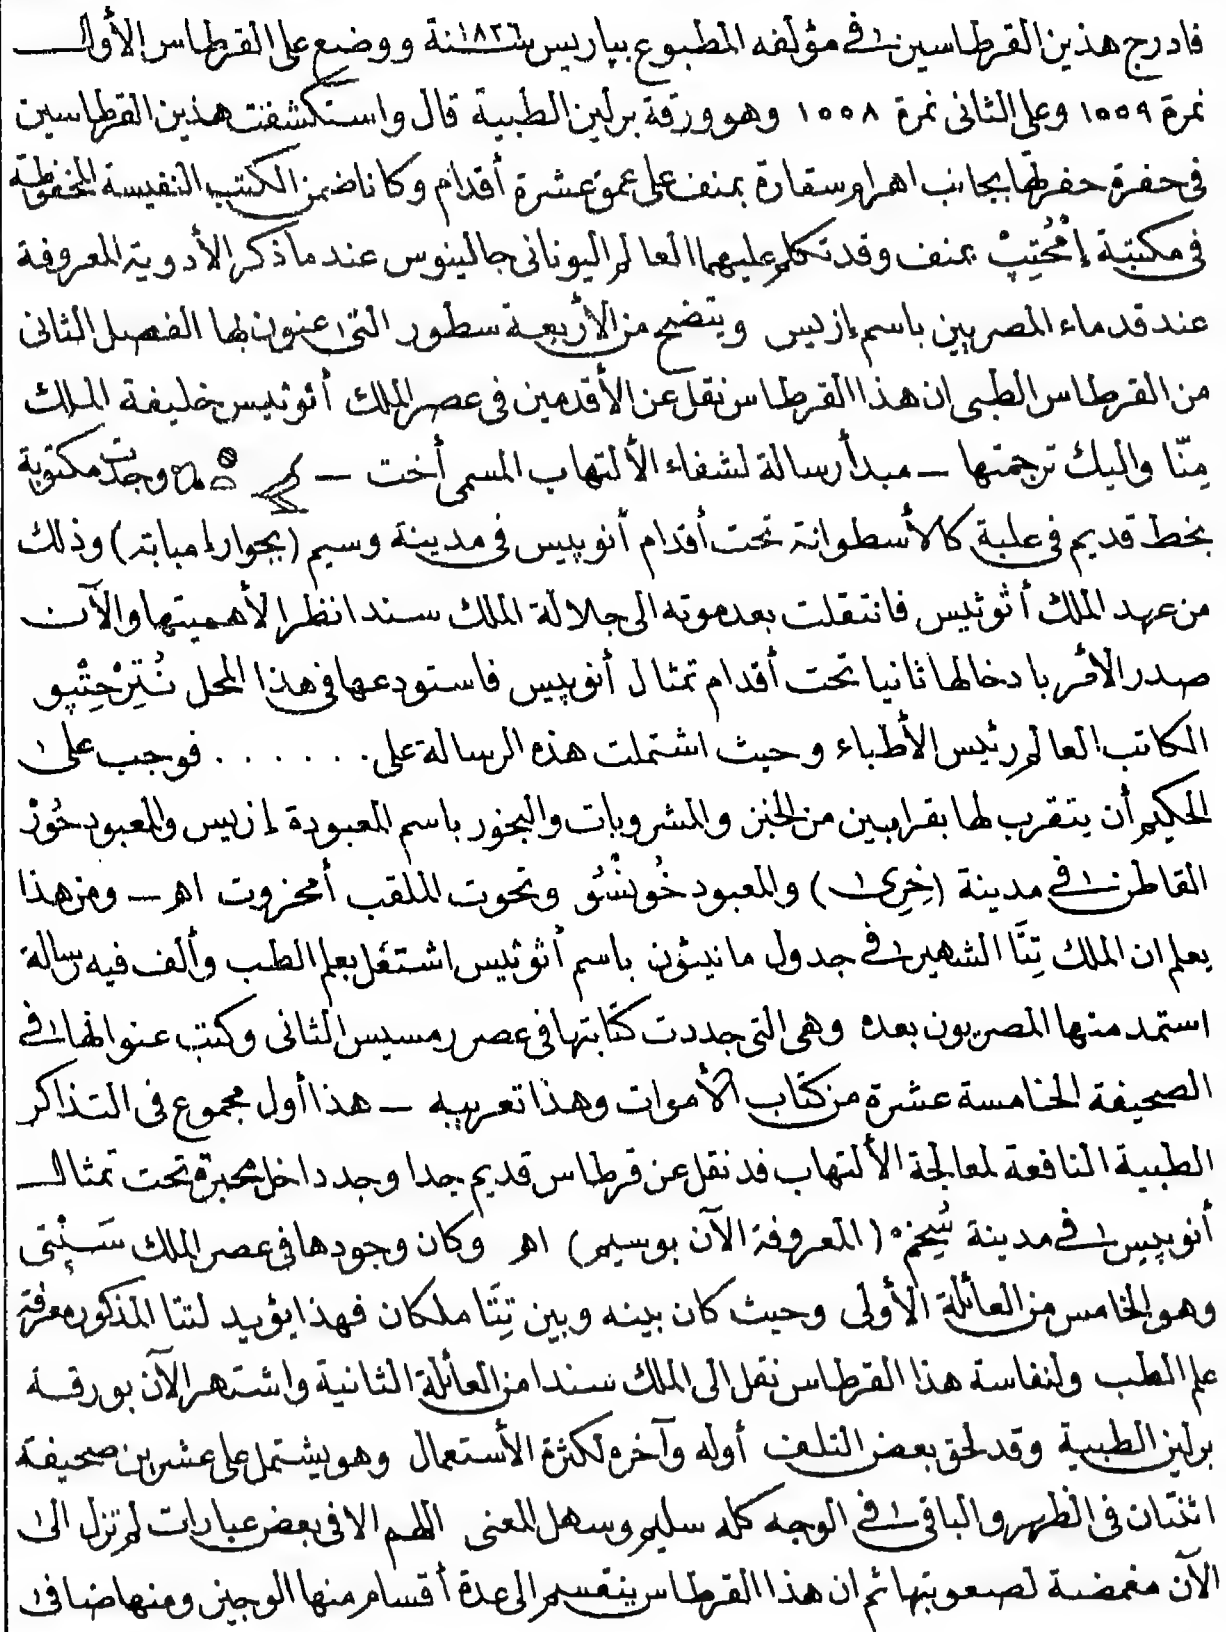 فادرج هذين القرطاسين فى مؤلفه المطبوع بباريس سنة ١٨٢٦ ووضع على القرطاس الأول
نمرة ١٥٥٩ وعلى الثانى نمرة ١٥٥٨ وهو ورقة برلين الطبية قال واستكشفت هذين القرطاسين
فى حفرة حفرتها بجانب اهرام سقارة بمنف على عمق عشرة أقدام وكانا ضمن الكتب النفيسة المحفوظة
فى مكتبة إمْحُتِپْ بمنف وقد تكلم عليهما العالم اليونانى جالينوس عند ما ذكر الأدوية المعروفة
عند قدماء المصريين باسم إزيس ويتضح من الأربعة سطور التى عنون بها الفصل الثانى
من القرطاس الطبى ان هذا القرطاس نقل عن الأقدمين فى عصر الملك أثوثيس خليفة الملك
مِنّا واليك ترجمتها – مبدأ رسالة لشفاء الألتهاب المسمى أخت – وجدت مكتوبة
بخط قديم فى علبة كالأسطوانة تحت أقدام أنوبيس فى مدينة وسيم (بجوار إمبابته) وذلك
من عهد الملك أثوثيس فانتقلت بعد موته الى جلالة الملك سندا نظرا لأهميتها والآن
صدر الأمر بادخالها ثانيا تحت أقدام تمثال أنوبيس فاستودعها فى هذا المحل نُتِرْحِتْپو
الكاتب العالم رئيس الأطباء وحيث اشتملت هذه الرسالة على . . . . . . فوجب على
الحكيم أن يتقرب لها بقرابين من الخبز والمشروبات والبخور باسم المعبودة إزيس والمعبود حُورْ
القاطن فى مدينة (خِرِى) والمعبود خُونْسُو وتحوت الملقب أمخزوت اهـ – ومن هذا
يعلم ان الملك تِتَّا الشهير فى جدول مانيثون باسم أثوثيس اشتغل بعلم الطب وألف فيه رسالة
استمد منها المصريون بعده وهى التى جددت كتابتها فى عصر رمسيس الثانى وكتب عنوانها فى
الصحيفة الخامسة عشرة من كتاب الأموات وهذا تعريبه – هذا أول مجموع فى التذاكر
الطبية النافعة لمعالجة الألتهاب قد نقل عن قرطاس قديم جدا وجد داخل محبرة تحت تمثال
أنوبيس فى مدينة سُيخم (المعروفة الآن بوسيم) اهـ وكان وجودها فى عصر الملك سَپْتِى
وهو الخامس من العائلة الأولى وحيث كان بينه وبين تِتَا ملكان فهذا يؤيد لتتا المذكور معرفة
علم الطب ولنفاسة هذا القرطاس نقل الى الملك سندا من العائلة الثانية واشتهر الآن بورقة
برلين الطبية وقد لحق بعض التلف أوله وآخره لكثرة الأستعمال وهو يشتمل على عشرين صحيفة
اثنتان فى الظهر والباقى فى الوجه كله سليم وسهل المعنى اللهم الا فى بعض عبارات لم تزل الى
الآن مغمضة لصعوبتها ثم ان هذا القرطاس ينقسم الى عدة أقسام منها الوجيز ومنها ضافى